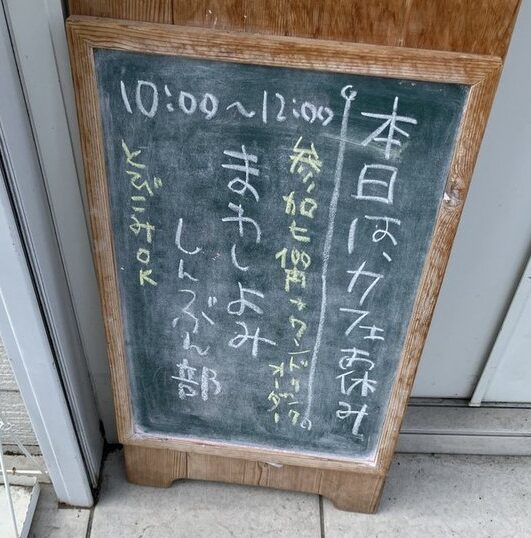 本日は、カフェお休み
10:00〜12:00
参加ヒ100円+ワンドリンクオーダー
まわしよみ
しんぶん部
とびこみOK